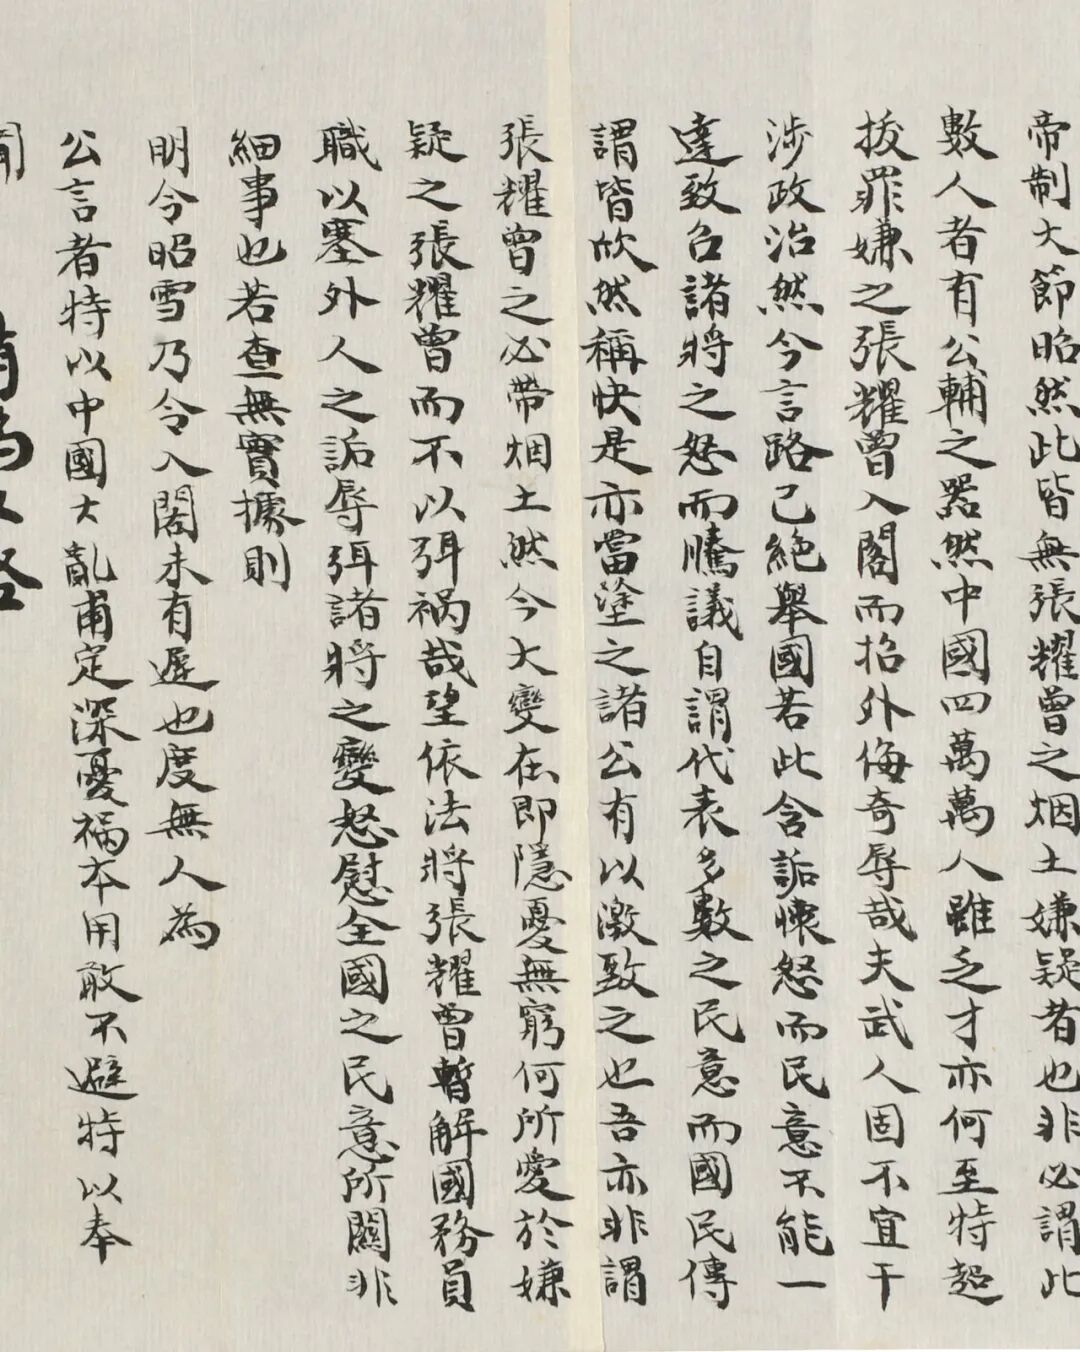 帝制大節昭然此皆無張耀曾之烟土嫌疑者也非必謂此
數人者有公輔之器然中國四萬萬人雖乏才亦何至特起
拔罪嫌之張耀曾入閣而招外侮奇辱哉夫武人固不宜干
涉政治然今言路已絕舉國若此含詬懷怒而民意不能一
達致召諸將之怒而騰議自謂代表多數之民意而國民傳
謂皆欣然稱快是亦當塗之諸公有以激致之也吾亦非謂
張耀曾之必帶烟土然今大變在即隱憂無窮何所愛於嫌
疑之張耀曾而不以弭禍哉望依法將張耀曾暫解國務員
職以塞外人之詬辱弭諸將之變怒慰全國之民意所關非
細事也若查無實據則
明令昭雪乃令入閣未有遲也度無人為
公言者特以中國大亂甫定深憂禍本用敢不避特以奉
聞